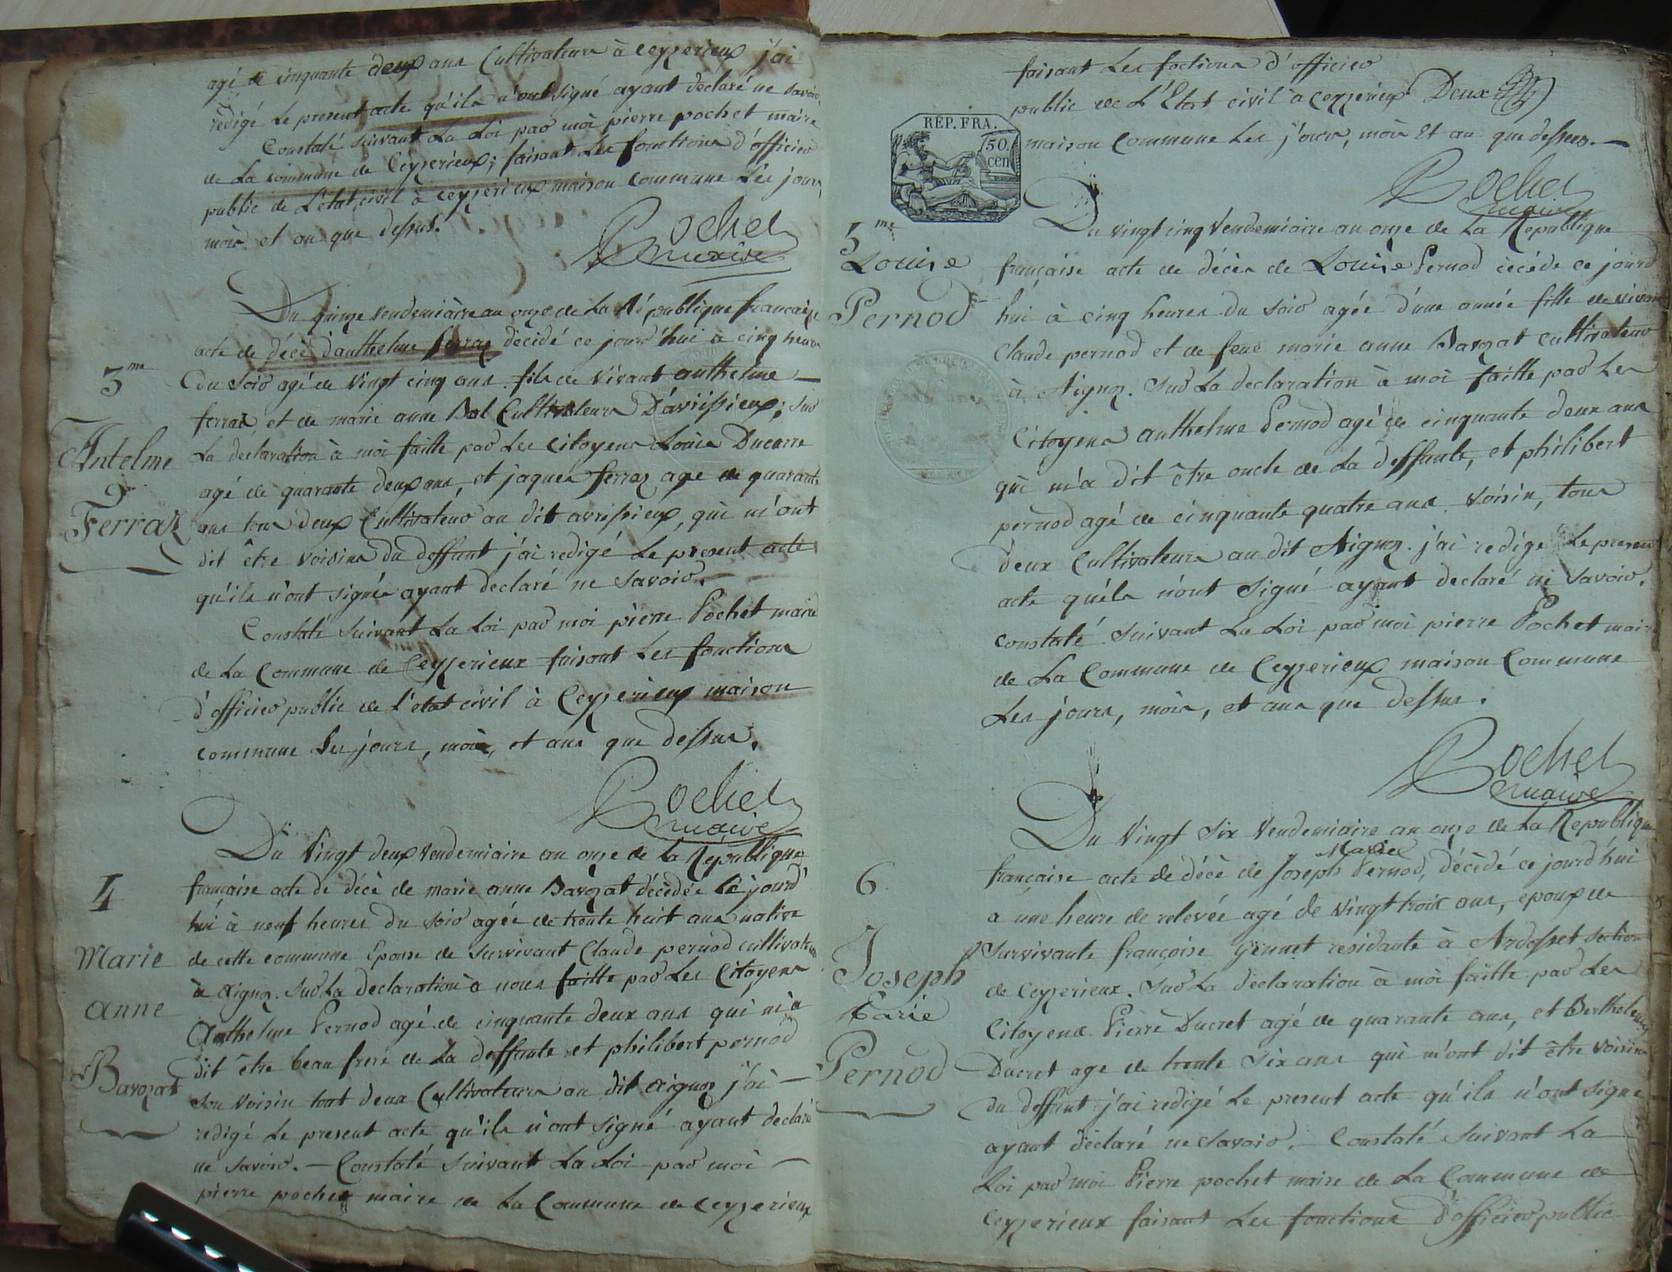 agé de cinquante deux ans Cultivateurs à Ceyzerieux j'ai
redigé le present acte qu'ils n'ont signé ayant declaré ne savoir
Constaté suivant La Loi par moi pierre pochet maire
de La commune de Ceyzerieux; faisant Les fonctions d'officier
public de L'état civil à ceyzerieux maison commune Les jours
mois et an que dessus.
Pochet
maire
Du quinze vendemiaire an onze de La République francaise
acte de décè d'anthelme ferraz décidé ce jourd'hui à cinq heures
3me
du soir agé de vingt cinq ans fils de vivant anthelme
ferraz et de marie anne Bal Cultivateurs D'avrissieux; sur
La declaration à moi faitte par Les Citoyens Louis Ducarre
Antelme
agé de quarante deux ans, et jaques ferraz age de quarante
Ferraz
ans tous deux Cultivateur au dit avrissieux, qui m'ont
dit être voisins du deffunt j'ai redigé Le present acte
qu'ils n'ont signée ayant declaré ne savoir.
Constaté suivant La Loi par moi pierre Pochet maire
de La Commune de Ceyzerieux faisant Les fonctions
d'officier public de l'etat civil à Ceyzerieux maison
commune Les jours, mois, et ans que dessus.
Pochet
maire
Du vingt deux vendemiaire an onze de La République
4
française acte de décè de marie anne Bavozat décédée ce jourd'
hui à neuf heures du soir agée de trente huit ans native
Marie
de cette commune Epouse de survivant Claude pernod cultivateur
à aignoz. sur La declaration à nous faitte par Les Citoyens
anne
Anthelme Pernod agé de cinquante deux ans qui m'a
dit être beau frere de La deffunte et philibert pernod
Bavozat
son voisin tout deux Cultivateurs au dit aignoz j'ai
redigé Le present acte qu'ils n'ont signé ayant declaré
ne savoir. — Constaté suivant La Loi par moi
pierre pochet maire de La Commune de ceyzerieux
faisant Les foctions d'officier
public de L'Etat civil à ceyzerieux Deux
REP. FRA.
50.
cen
maison Commune Les jours, mois et an que dessus.
Pochet
maire
Du vingt cinq Vendemiaire an onze de La Republique
5me
Louise
française acte de décès de Louise Pernod décédé ce jourd
Pernod
hui à cinq heures du soir agée d'une année fille de vivant
Claude pernod et de feue marie anne Bavozat cultivateur
à Aignoz. Sur La declaration à moi faitte par Les
Citoyens anthelme Pernod agé de cinquante deux ans
qui m'a dit être oncle de La deffunte, et philibert
pernod agé de cinquante quatre ans. voisin, tous
deux Cultivateurs au dit Aignoz. j'ai redigé Le present
acte qu'els n'ont signé ayant declaré ne savoir.
constaté suivant La Loi par moi pierre Pochet maire
de La Commune de Ceyzerieux maison Commune
Les jours, mois, et ans que dessus.
Pochet
maire
Du vingt six vendemiaire an onze de La Republique
Marie
6
française acte de décè de Joseph Pernod, décèdé ce jourd'hui
a une heure de relevée agé de vingt trois ans, epoux de
Joseph
survivante françoise Gennet residante à Ardosset section
de ceyzerieux. Sur La declaration à moi faitte par Les
Marie
Citoyens Pierre Ducret agé de quarante ans, et Berthelemy
Pernod
Ducret age de trente six ans qui m'ont dit être voisins
du deffunt j'ai redigé Le present acte qu'ils n'ont signé
ayant declaré ne savoir. Constaté suivant La
Loi par moi Pierre pochet maire de La Commune de
ceyzerieux faisant Les fonctions d'officier public